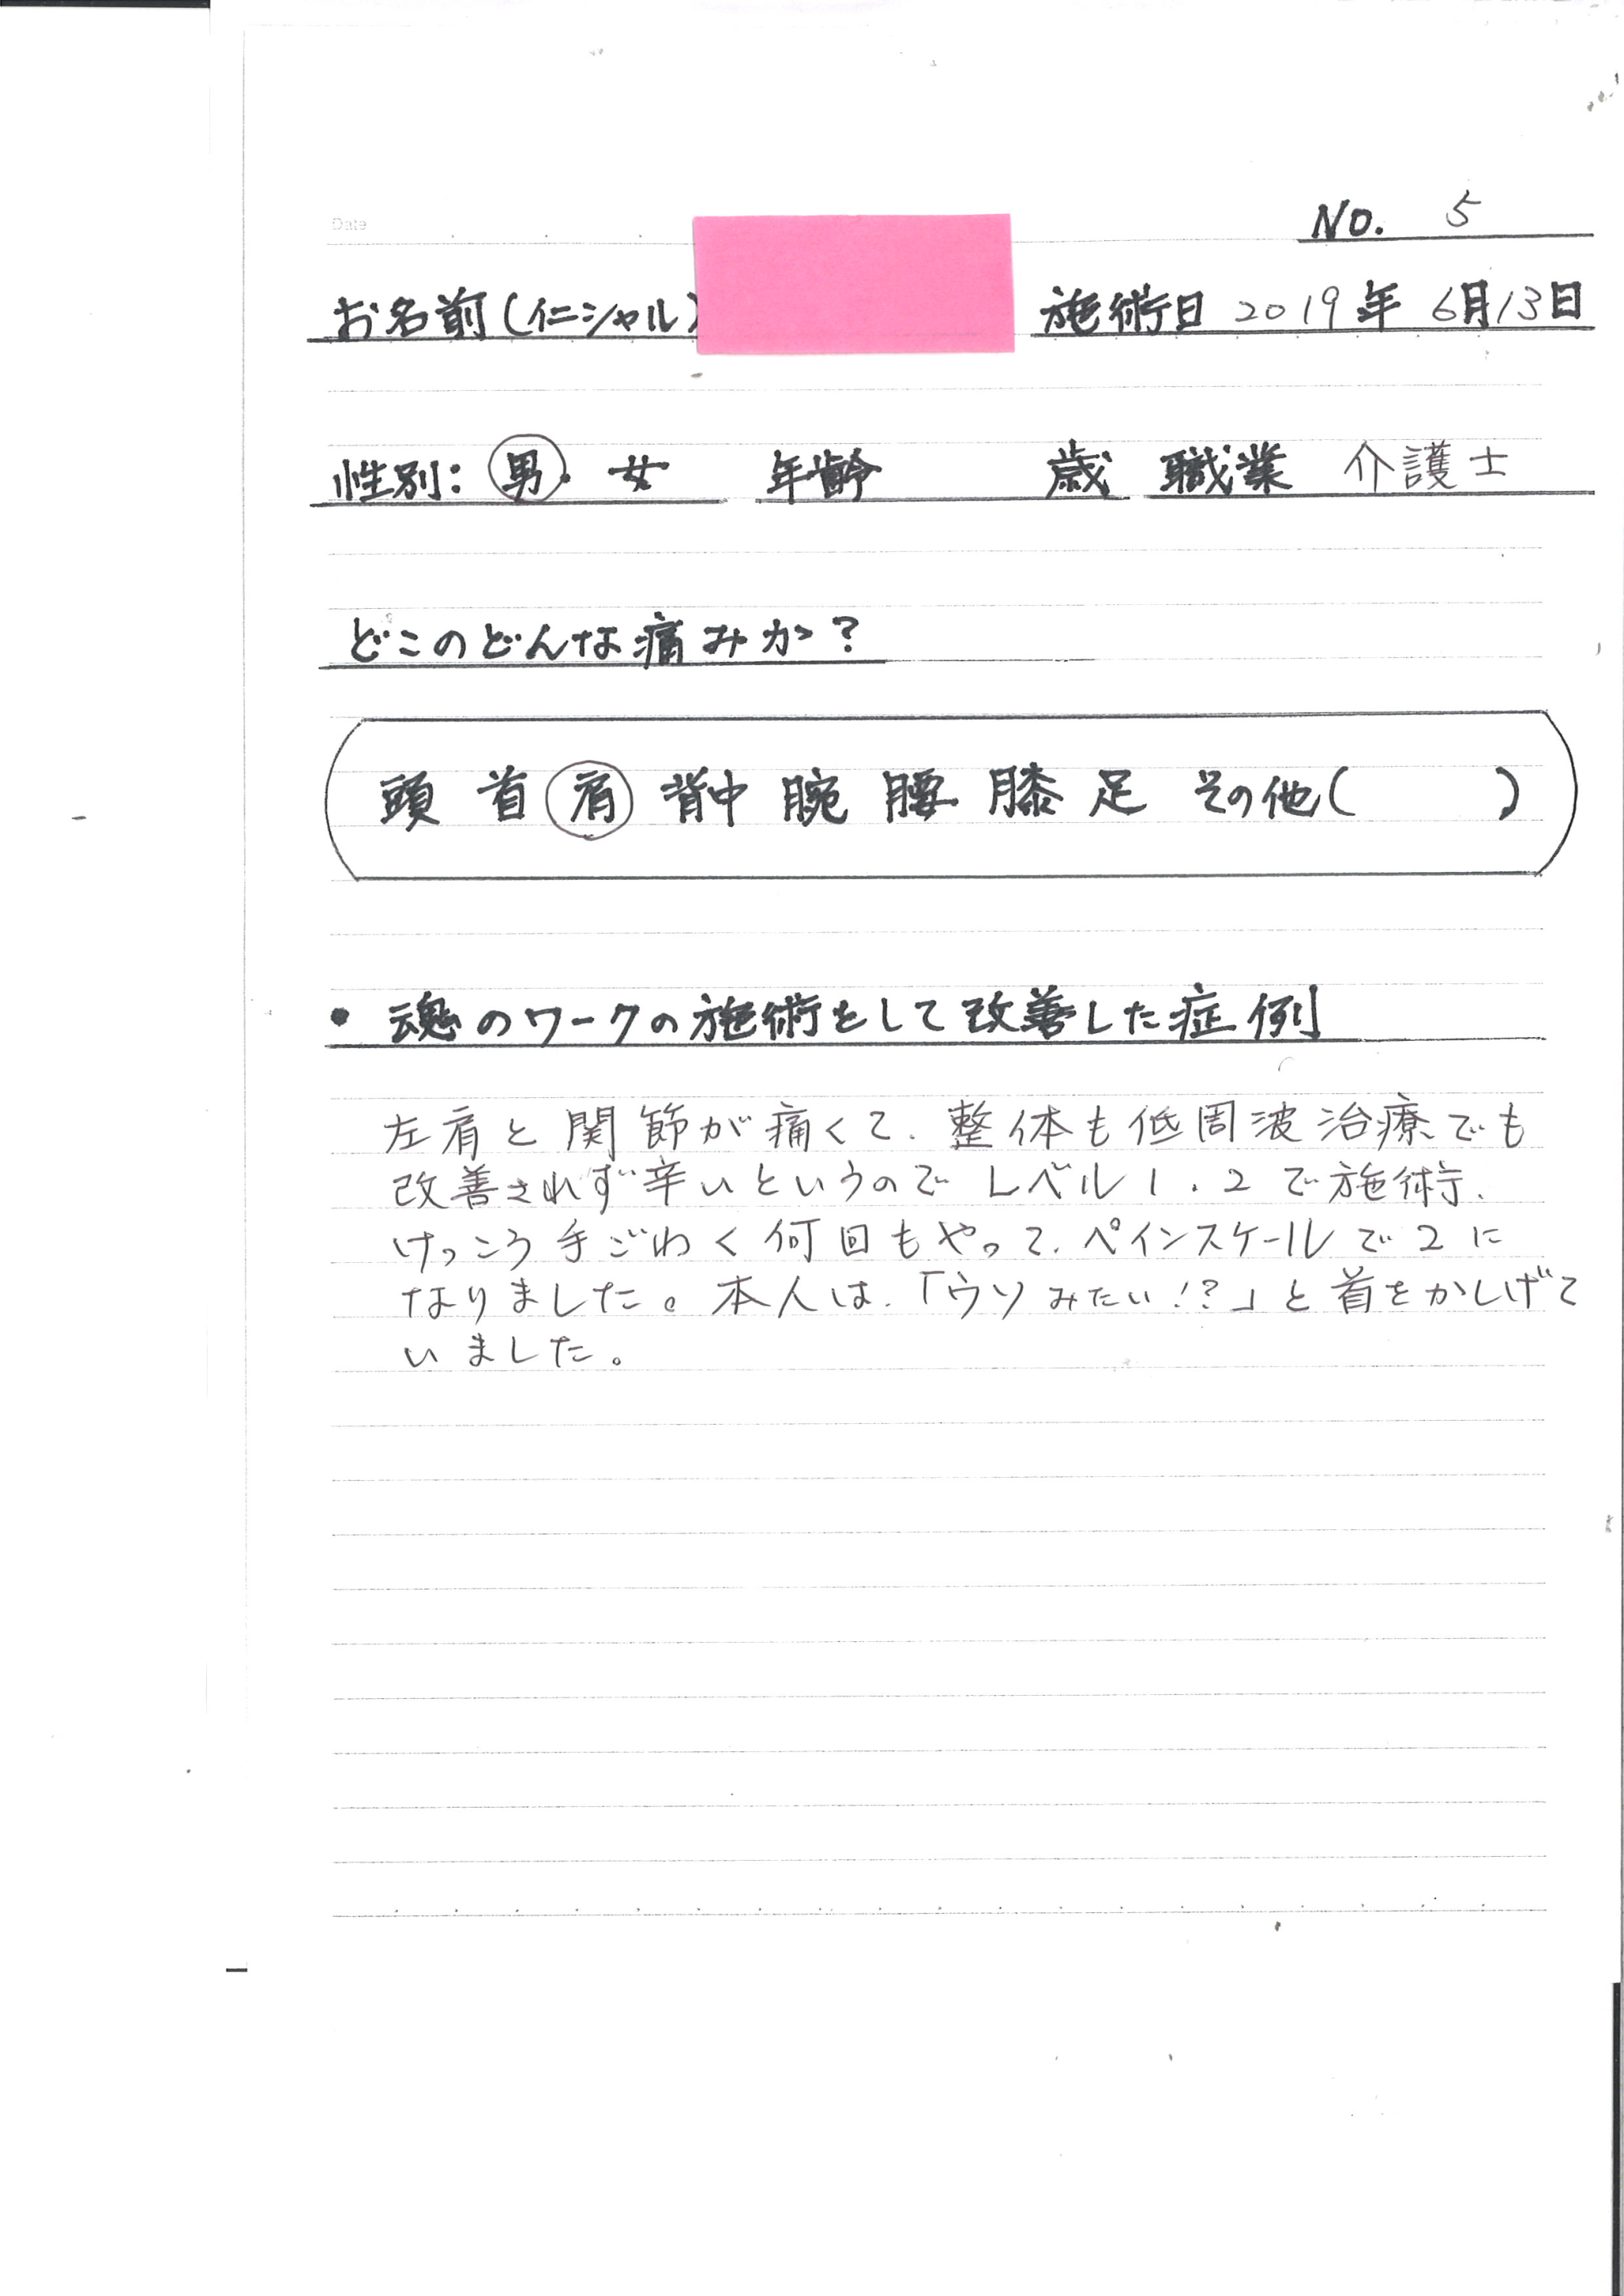 Date
No. 5
お名前(イニシャル) 施術日 2019年 6月13日
性別: 男・女 年齢 歳 職業 介護士
どこのどんな痛みか?
頭 首 肩 背中 腕 腰 膝 足 その他( )
• 魂のワークの施術をして改善した症例
左肩と関節が痛くて、整体も低周波治療でも
改善されず辛いというのでレベル1、2で施術、
けっこう手ごわく何回もやって、ペインスケールで2に
なりました。本人は、「ウソみたい!?」と首をかしげて
いました。